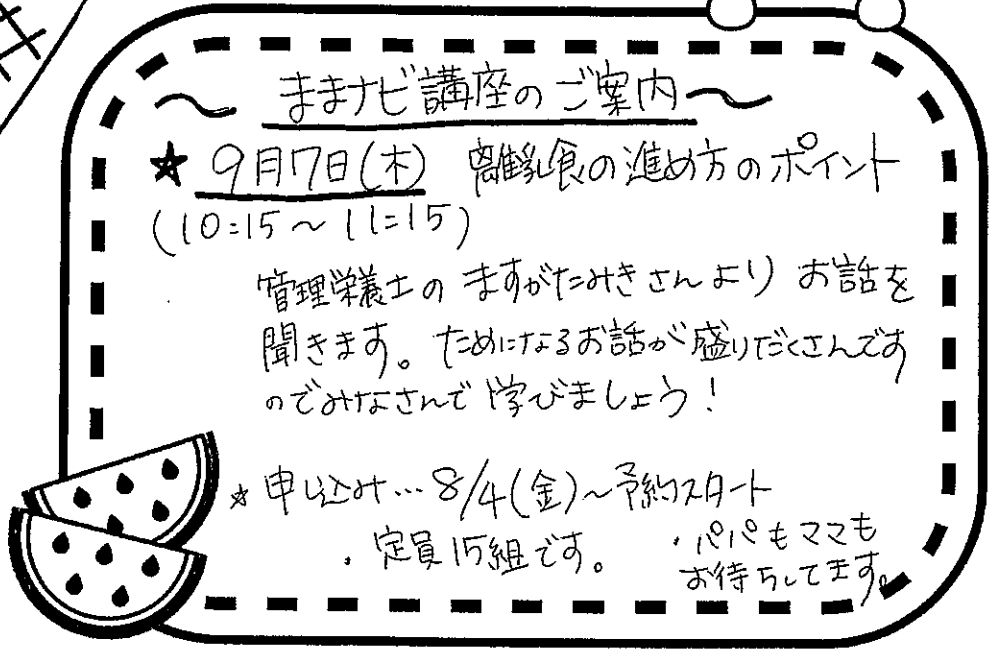 ～ままナビ講座のご案内～
★ 9月7日(木) 離乳食の進め方のポイント
(10:15～11:15)
管理栄養士のますがたみきさんよりお話を
聞きます。ためになるお話が盛りだくさんです
のでみなさんで学びましょう!
☆申し込み…8/4(金)～予約スタート
・定員15組です。
・パパもママも
お待ちしてます。